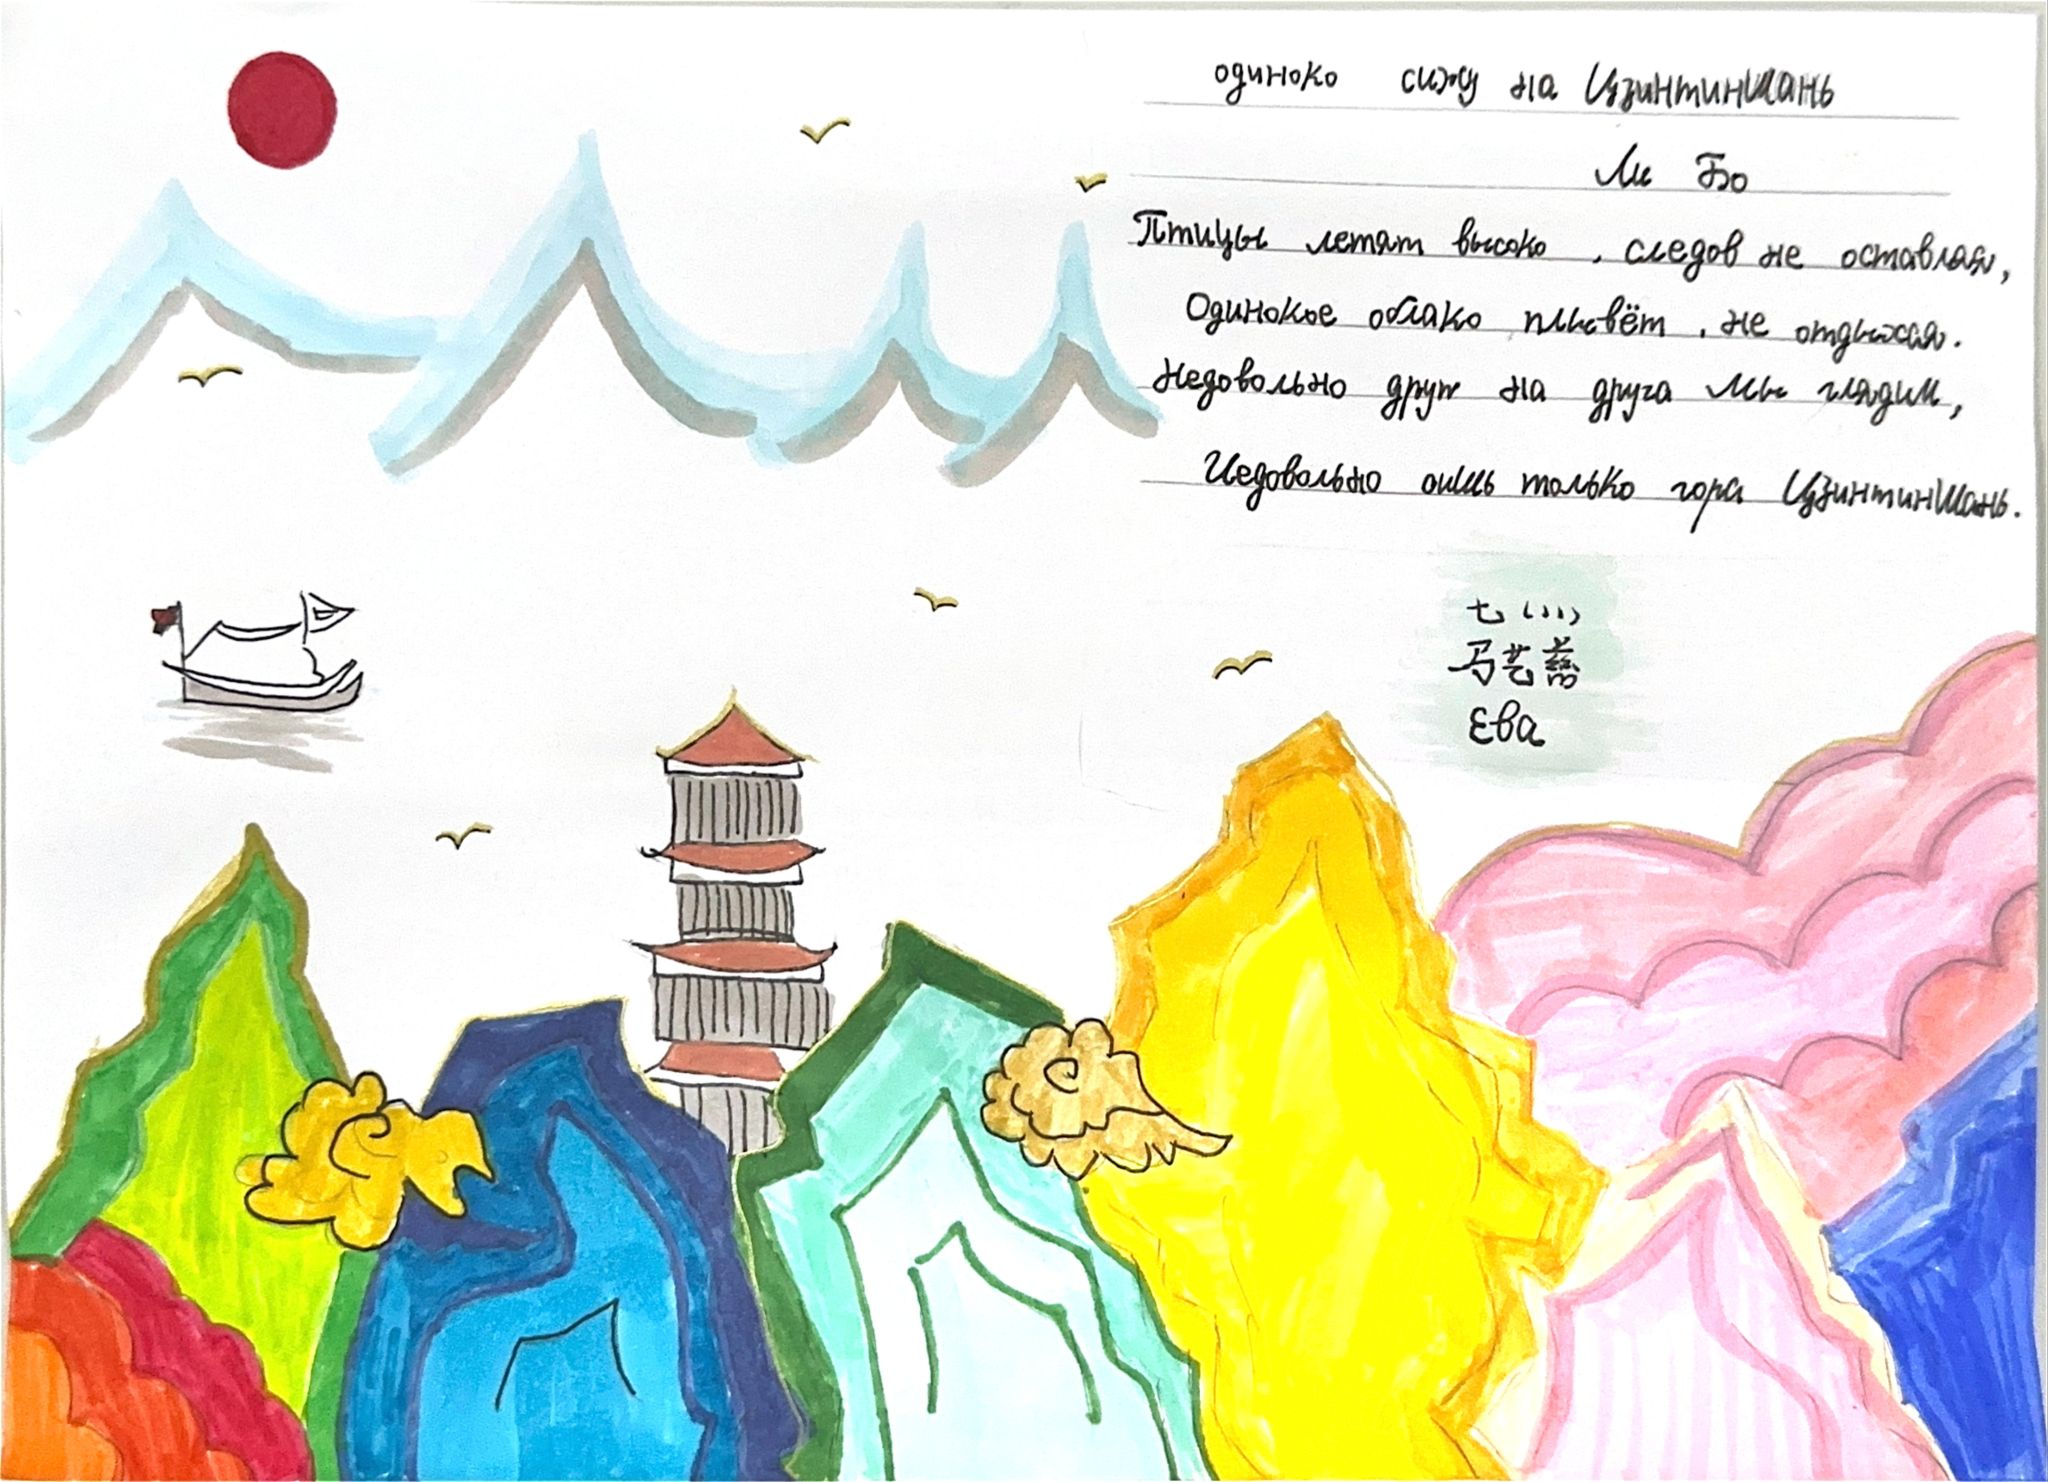 одиноко сижу на Цзинтиншань
Ли Бо
Птицы летят высоко, следов не оставляя,
Одинокое облако плывёт, не отдыхая.
Недовольно друг на друга мы глядим,
Недовольно лишь только гора Цзинтиншань.
七
马艺
Ева